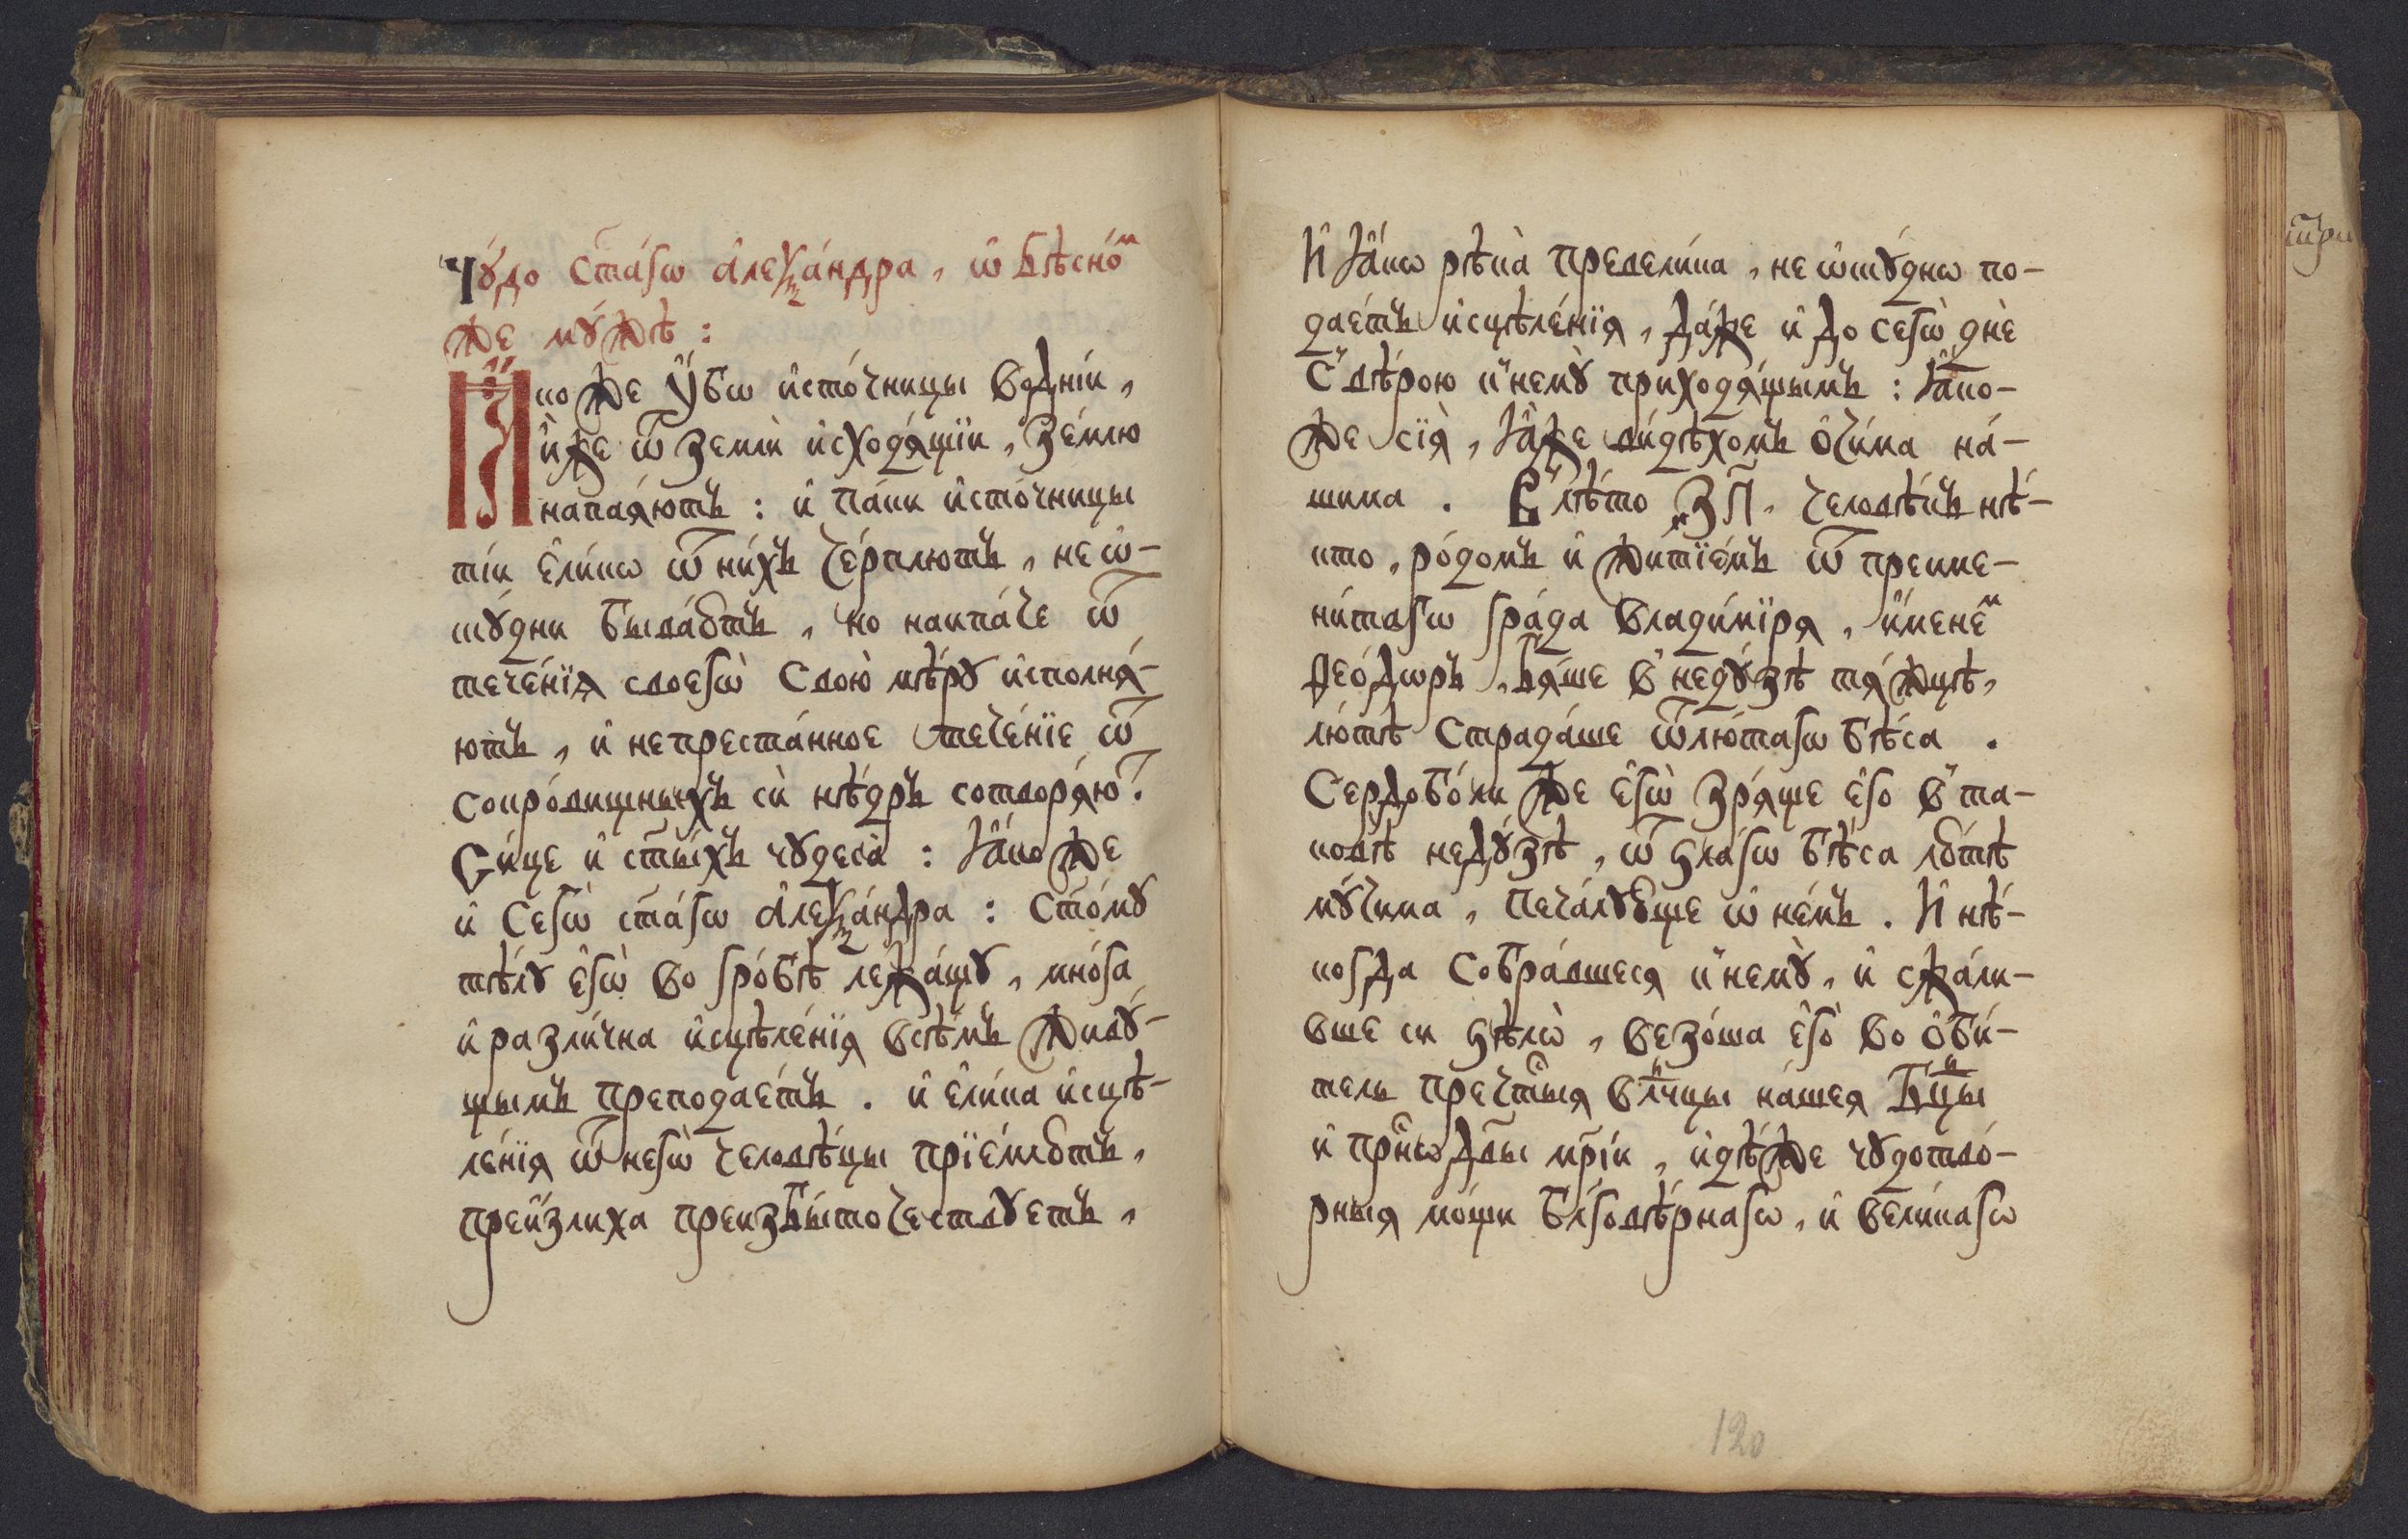 Чꙋ́до ст҃а́гѡ а҆леѯа́ндра, ѡ҆ бѣсно́ᵐ
же мꙋ́жѣ:
Ꙗ҆́коже ᲂу҆́бѡ и҆сто́чницы водні́и,
и҆̀же ѿ землѝ и҆сходѧ́щїи, зе́млю
напаѧ́ютъ: и҆ па́ки и҆сто́чницы
ті́и є҆ли́кѡ ѿ ни́хъ че́рплютъ, не ѡ҆-
скꙋ́дни быва́ютъ, но наипа́че ѿ
тече́нїѧ своегѡ̀ свою̀ мѣ́рꙋ и҆сполнѧ́-
ютъ, и҆ непреста́нное тече́нїе ѿ
сокро́вищныхъ сѝ нѣ́дръ сотворѧ́ю.
Си́це и҆ ст҃ы́хъ чꙋдеса̀: ꙗ҆́коже
и҆ сегѡ̀ ст҃а́гѡ а҆леѯа́ндра: ст҃о́мꙋ
тѣ́лꙋ є҆гѡ̀ во гро́бѣ лежа́щꙋ, мно́га
и҆ разли́чна и҆сцѣле́нїѧ всѣ́мъ живꙋ́-
щымъ преподае́тъ. и҆ є҆ли́ка и҆сцѣ-
ле́нїѧ ѿ негѡ̀ человѣ́цы прїе́млютъ,
преи́злиха преизбы́точествꙋетъ,
И҆ ꙗ҆́кѡ рѣка̀ превели́ка, не ѡ҆скꙋ́днѡ по-
дае́тъ и҆сцѣле́нїѧ, да́же и҆ до сегѡ̀ днѐ
с̾ вѣ́рою к̾ немꙋ̀ приходѧ́щымъ: ꙗ҆́ко-
же сїѧ̀, ꙗ҆́же ви́дѣхомъ ѻ҆чи́ма на́-
шима. В̾ лѣ́то ҂зп҃. человѣ́къ нѣ́-
кто, ро́домъ и҆ житїе́мъ ѿ преиме-
ни́тагѡ гра́да влади́мїрѧ, и҆́менеᵐ
ѳео́дѡръ, бѧ́ше в̾ недꙋ́зѣ тѧ́жцѣ,
лю́тѣ страда́ше ѿ лю́тагѡ бѣ́са.
Сердобо́ли же є҆гѡ̀ зрѧ́ще є҆го в̾ та-
ковѣ недꙋ́зѣ, ѿ ѕла́гѡ бѣ́са лю́тѣ
мꙋ́чима, печа́лꙋюще ѡ҆ не́мъ. И҆ нѣ́-
когда собра́вшесѧ к̾ немꙋ̀, и҆ сжа́ли-
вше си ѕѣлѡ̀, везо́ша є҆го̀ во ѻ҆би́-
тель пречⷭ҇тыѧ вл҃чцы на́шеѧ бц҃ы
и҆ прⷭ҇нѡ дв҃ы мр҃і́и, и҆дѣ́же чꙋдотво́-
рныѧ мо́щи бл҃говѣ́рнагѡ, и҆ вели́кагѡ
120